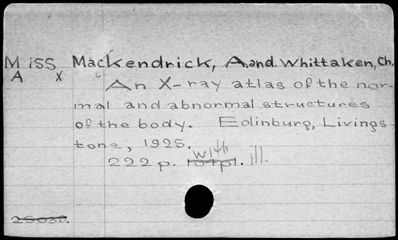 M iss Mackendrick, A. and Whittaken, Ch.
A x An X-ray atlas of the nor-
mal and abnormal structures
of the body. Edinburg, Livings-
tone, 1925.
222 p. with ill.